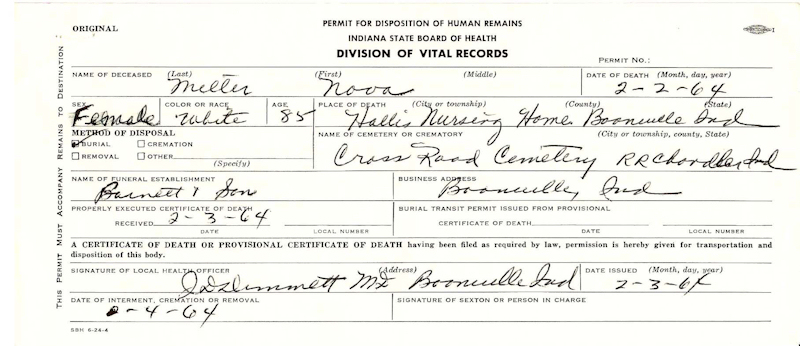 ORIGINAL
PERMIT FOR DISPOSITION OF HUMAN REMAINS
INDIANA STATE BOARD OF HEALTH
DIVISION OF VITAL RECORDS
PERMIT NO.:
THIS PERMIT MUST ACCOMPANY REMAINS TO DESTINATION
NAME OF DECEASED (Last) (First) (Middle) DATE OF DEATH (Month, day, year)
Miller Nova 2-2-64
SEX COLOR OR RACE AGE PLACE OF DEATH (City or township) (County) (State)
Female White 85 Hallis Nursing Home Boonville Ind
METHOD OF DISPOSAL NAME OF CEMETERY OR CREMATORY (City or township, county, State)
BURIAL CREMATION
REMOVAL OTHER (Specify)
Cross Road Cemetery RR Chandler Ind
NAME OF FUNERAL ESTABLISHMENT BUSINESS ADDRESS
Barnett & Son Boonville, Ind
PROPERLY EXECUTED CERTIFICATE OF DEATH BURIAL TRANSIT PERMIT ISSUED FROM PROVISIONAL
RECEIVED 2-3-64 CERTIFICATE OF DEATH
DATE LOCAL NUMBER DATE LOCAL NUMBER
A CERTIFICATE OF DEATH OR PROVISIONAL CERTIFICATE OF DEATH having been filed as required by law, permission is hereby given for transportation and
disposition of this body.
SIGNATURE OF LOCAL HEALTH OFFICER (Address) DATE ISSUED (Month, day, year)
Boonville Ind 2-3-64
DATE OF INTERMENT, CREMATION OR REMOVAL SIGNATURE OF SEXTON OR PERSON IN CHARGE
2-4-64
SBH 6-24-4